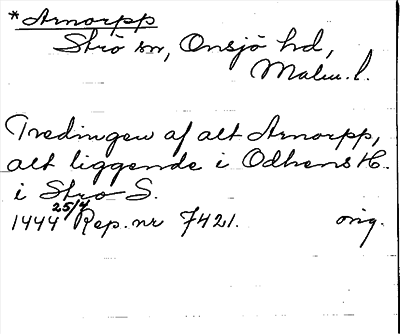 *Arnorpp
Strö sn, Onsjö hd,
Malm.l.
Tredingen af alt Arnorpp,
alt liggende i Odhens H.
i Strø S.
1444 25/4 Rep. nr 7421. orig.